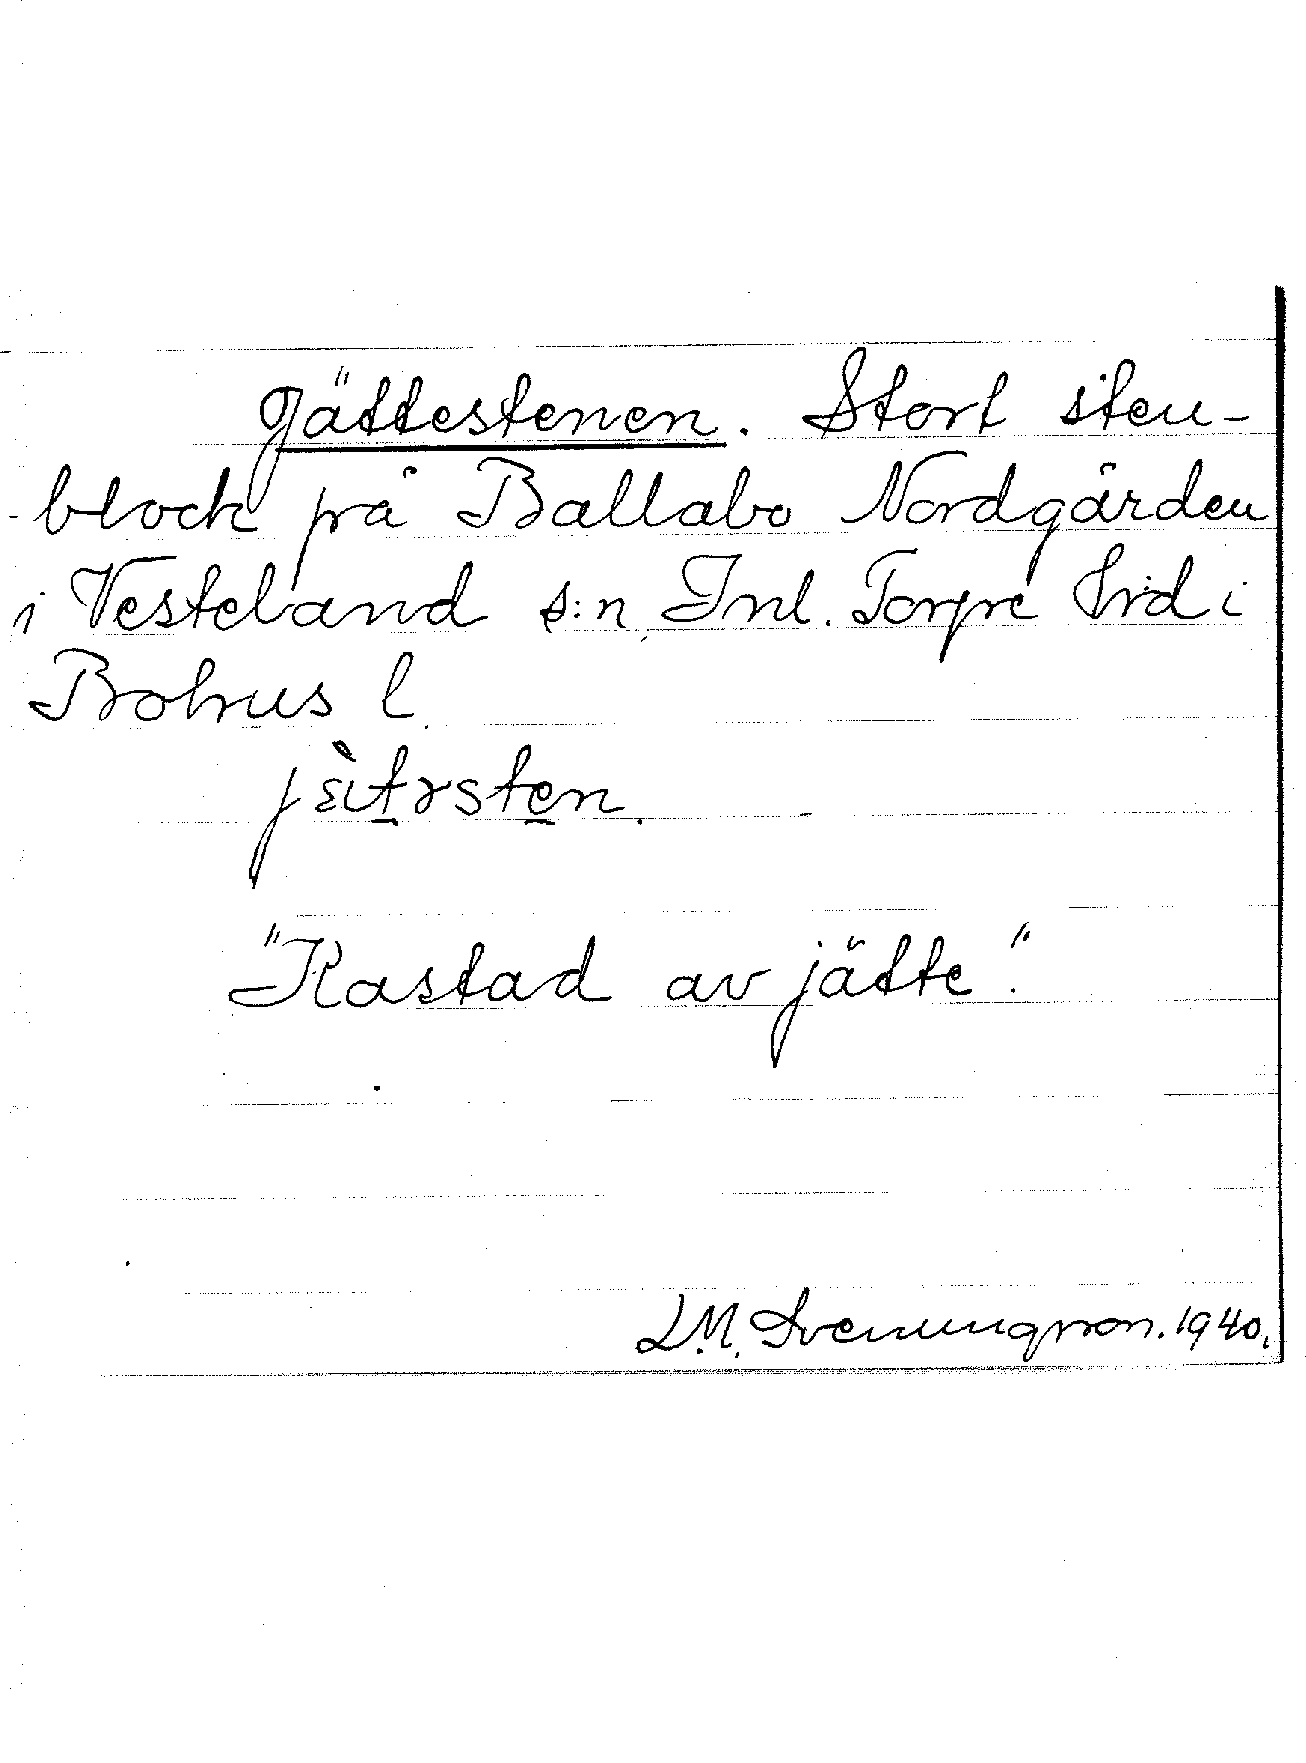 Jättestenen. Stort sten-
block på Ballabo Nordgården
i Vesterland s:n, Inl. Torpe hrd i
Bohus l.
jɛ̀təsten.
"Kastad av jätte".
L.M. Svenungsson. 1940.